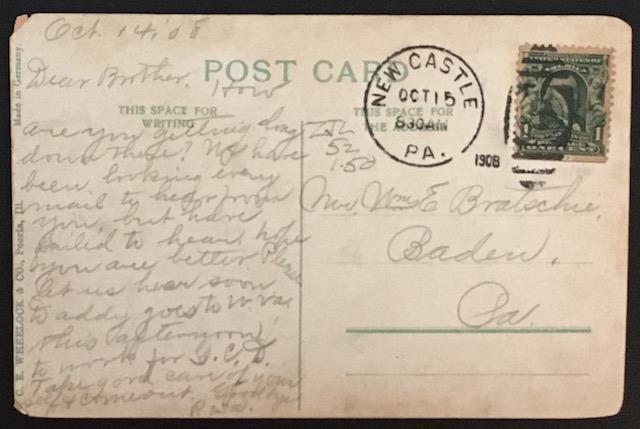 Oct. 14, '08
Dear Brother. How
are you getting along
down there? We have
been looking every
mail to hear from
you, but have
failed to hear. hope
you are better. Please
let us hear soon
Daddy goes to W. Va.
this afternoon
to work for G. C. D.
Take good care of your
self & come out. Good bye
POST CARD
THIS SPACE FOR
WRITING
THIS SPACE FOR
THE ADDRESS
52
1.50
NEW CASTLE
OCT 15
830AM
PA.
1908
UNITED STATES OF
AMERICA
1
Mr. Wm E Bratschie,
Baden,
Pa.
C. E. WHEELOCK & CO., Peoria, Ill. Made in Germany.